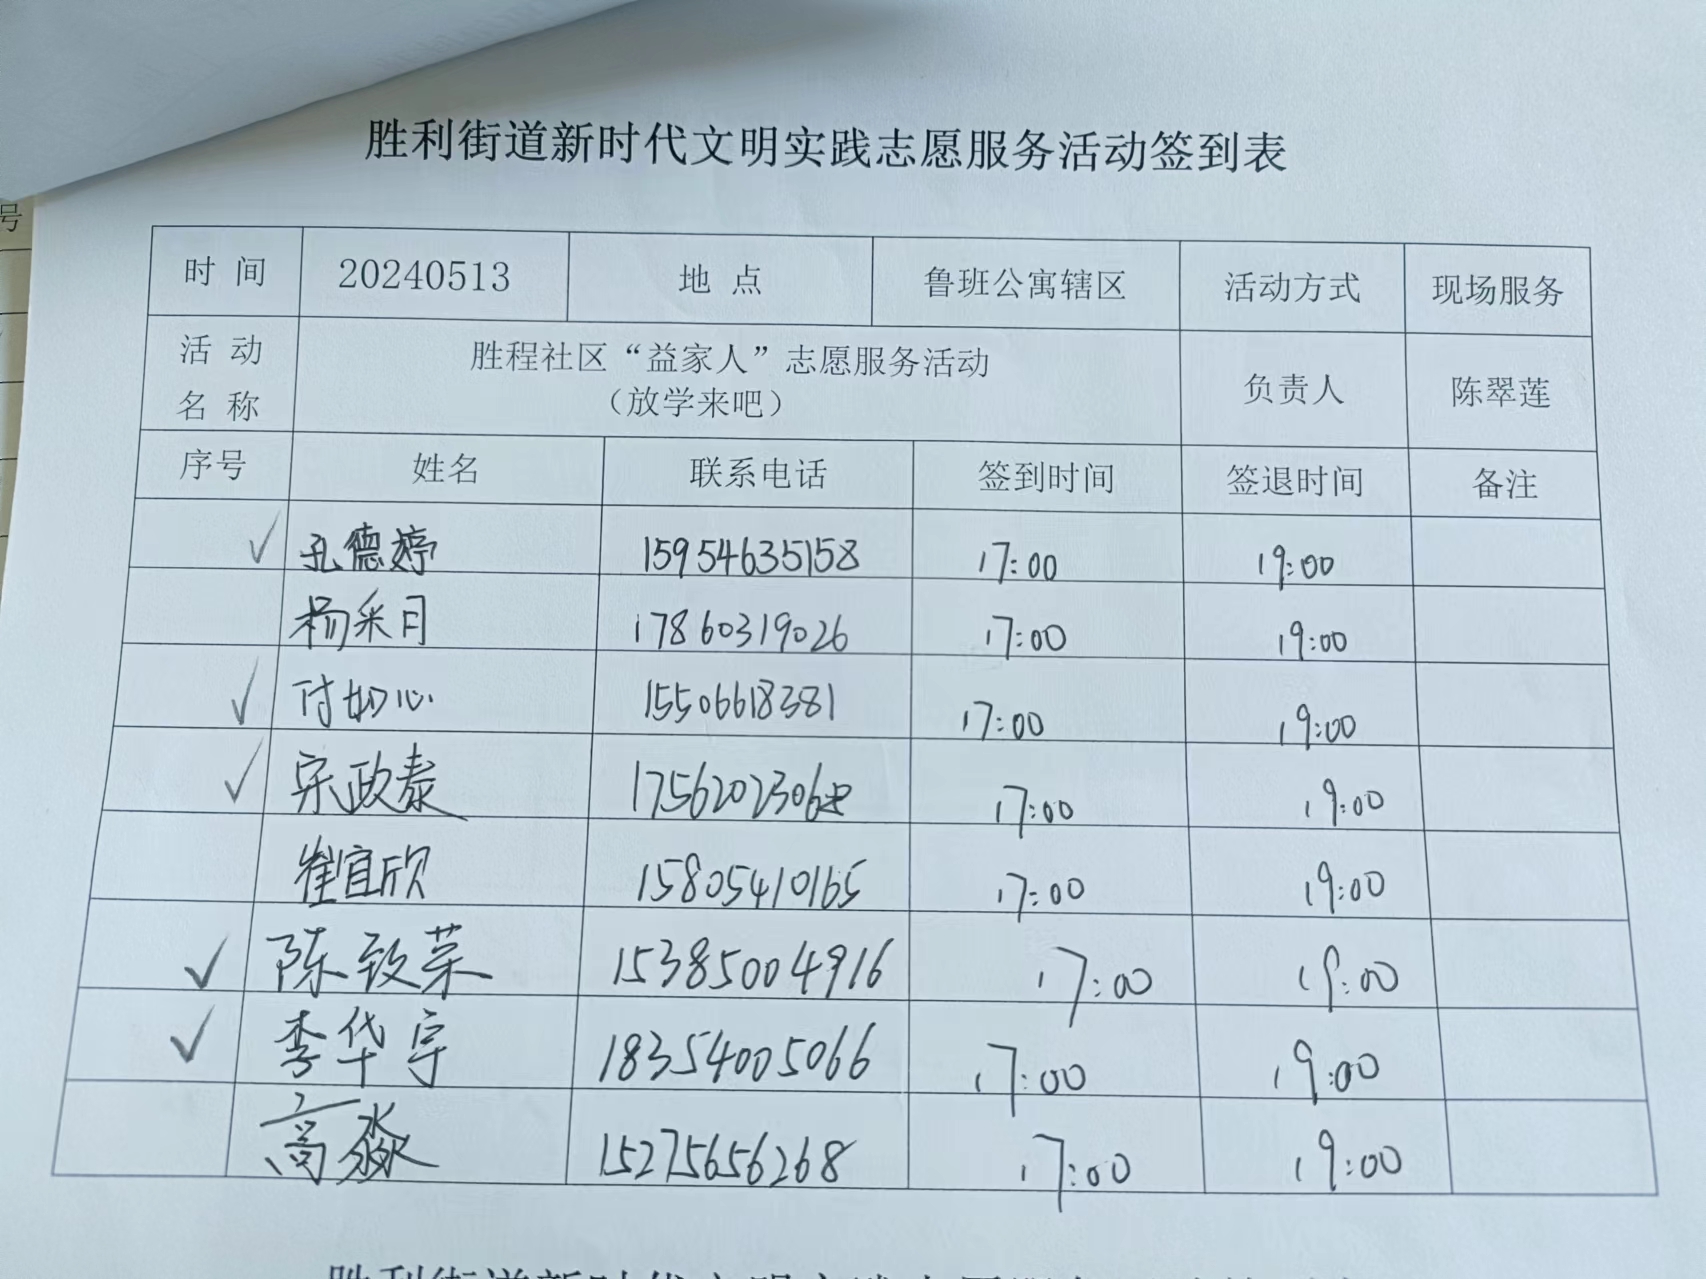 号
胜利街道新时代文明实践志愿服务活动签到表
时 间 20240513 地 点 鲁班公寓辖区 活动方式 现场服务
活 动 名 称 胜程社区“益家人”志愿服务活动 （放学来吧） 负责人 陈翠莲
序号 姓名 联系电话 签到时间 签退时间 备注
✓ 孔德婷 15954635158 17:00 19:00
杨采月 17860319026 17:00 19:00
✓ 付如心 15506618381 17:00 19:00
✓ 宋政泰 17:00 19:00
崔宜欣 15805410165 17:00 19:00
✓ 陈致荣 15385004916 17:00 19:00
✓ 李华宇 18354005066 17:00 19:00
高淼 15275656268 17:00 19:00